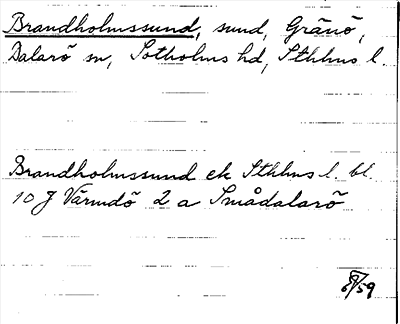 Brandholmssund, sund, Gränö,
Dalarö sn, Sotholms hd, Sthlms l.
Brandholmssund ek Sthlms l. bl.
10 J Värmdö 2 a Smådalarö
/59